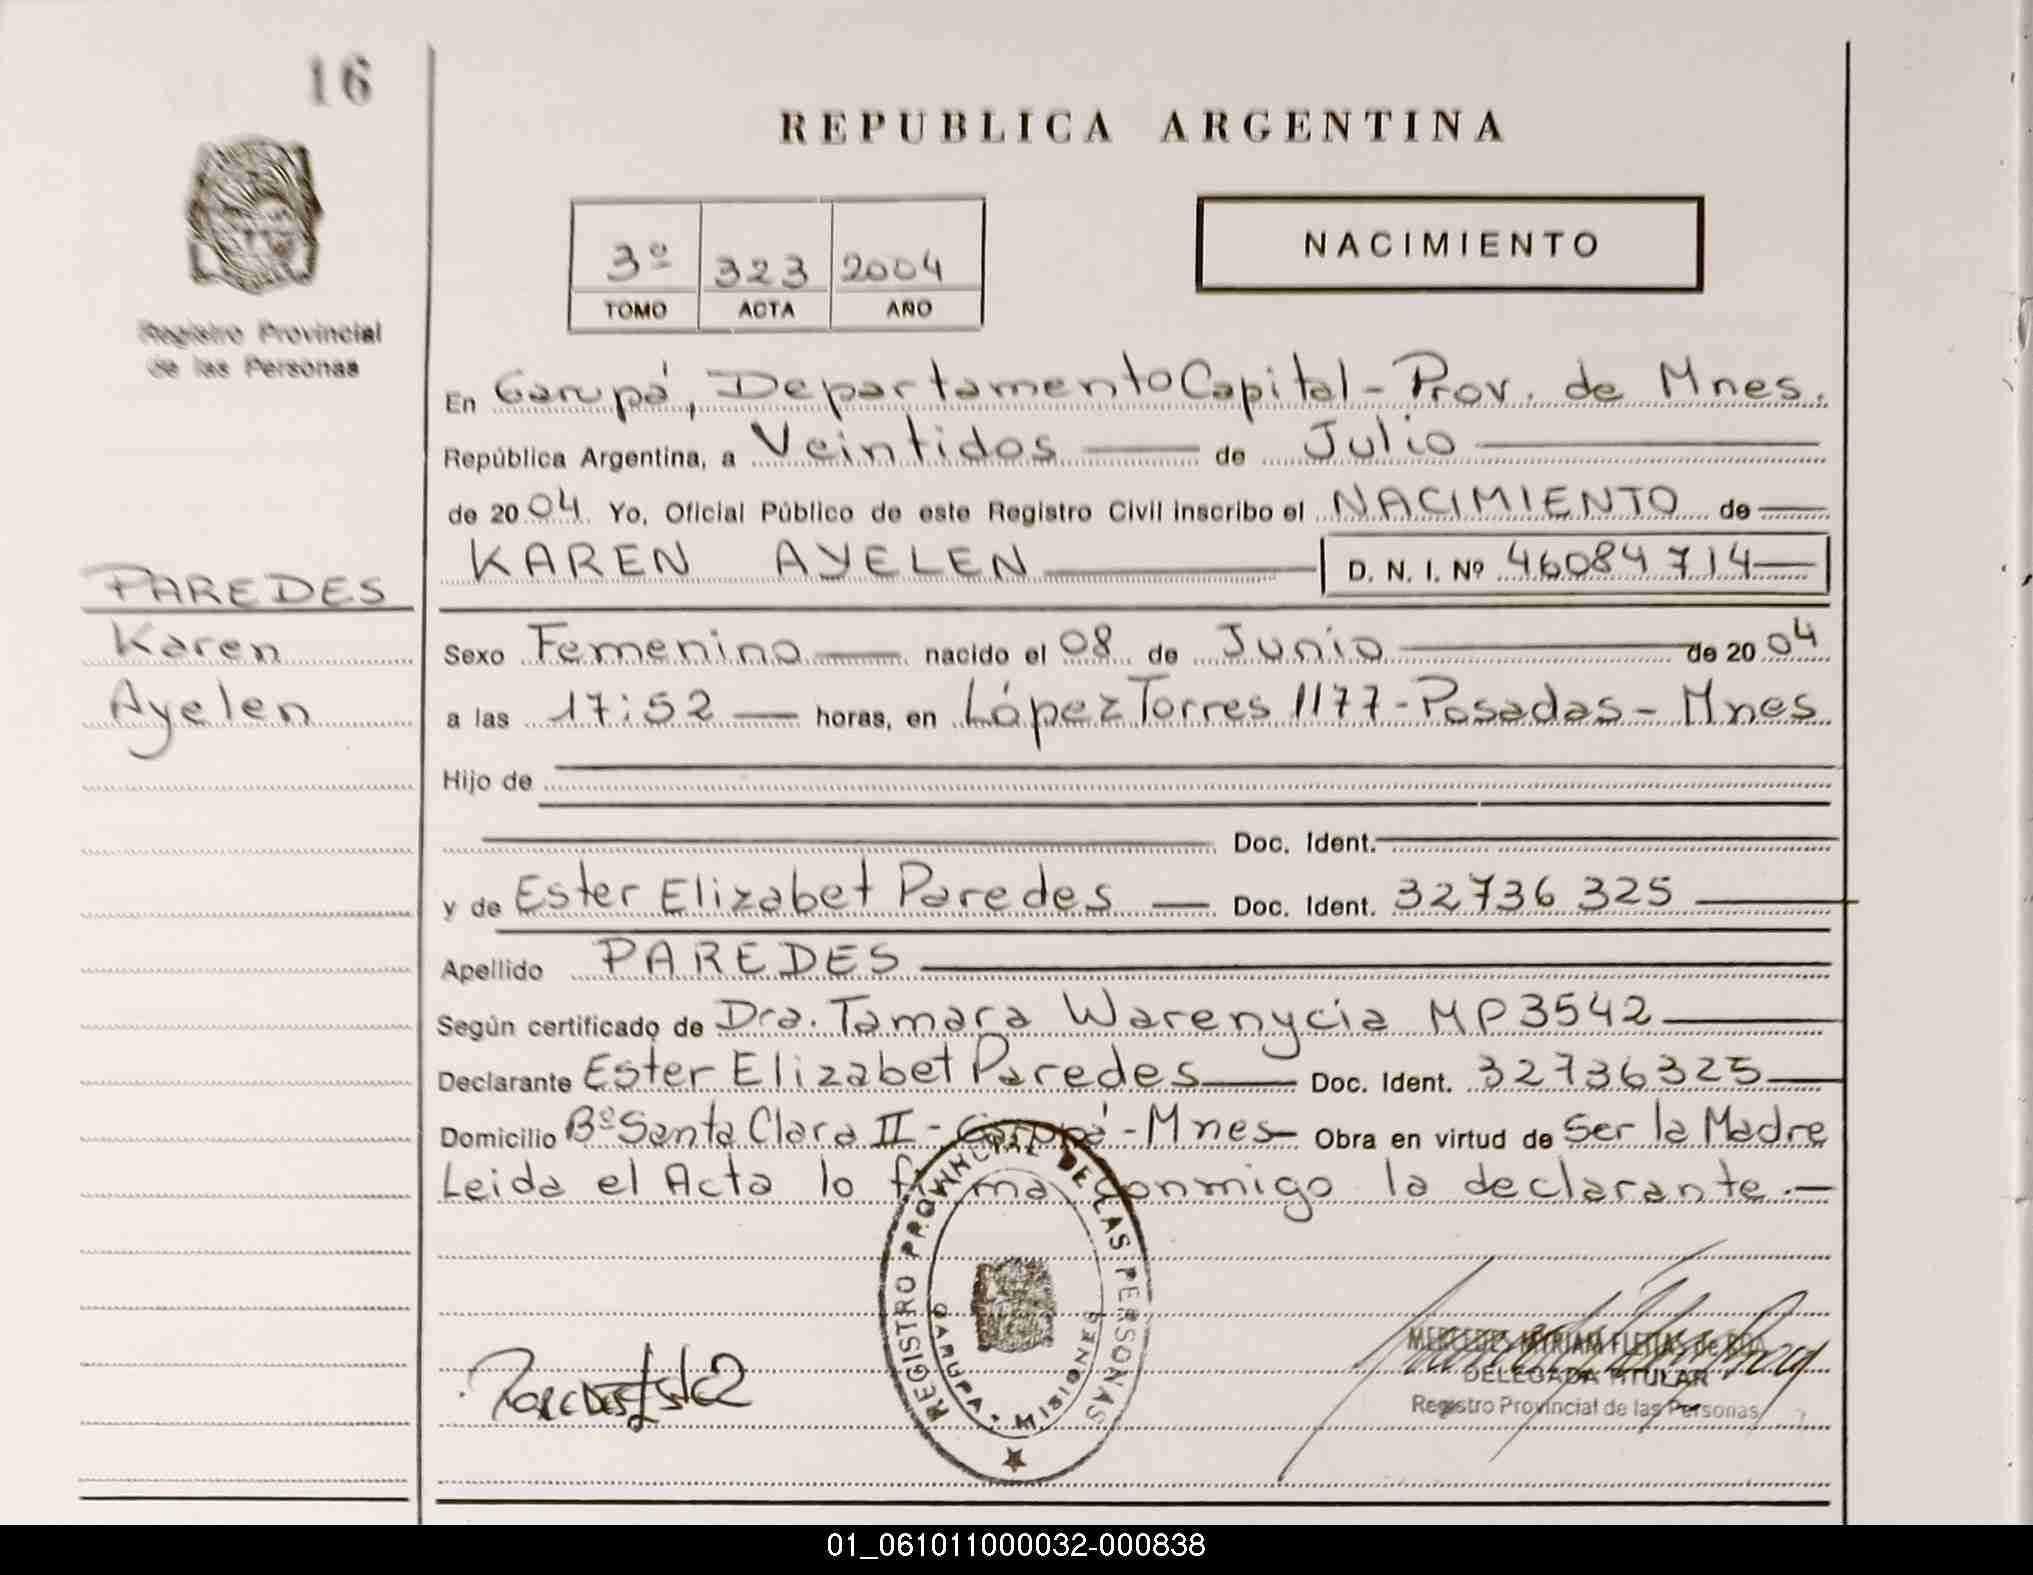 16
REPUBLICA ARGENTINA
Registro Provincial
de las Personas
3º 323 2004
TOMO ACTA AÑO
NACIMIENTO
En Garupá, Departamento Capital - Prov. de Mnes.
República Argentina, a Veintidos de Julio
de 2004 Yo, Oficial Público de este Registro Civil inscribo el NACIMIENTO de
KAREN AYELEN D. N. I. Nº 46084714
PAREDES
Karen
Ayelen
Sexo Femenino nacido el 08 de Junio de 2004
a las 17:52 horas, en López Torres 1177 - Posadas - Mnes
Hijo de
Doc. Ident.
y de Ester Elizabet Paredes Doc. Ident. 32736325
Apellido PAREDES
Según certificado de Dra. Tamara Warenycia MP3542
Declarante Ester Elizabet Paredes Doc. Ident. 32736325
Domicilio Bº Santa Clara II - Garupá - Mnes Obra en virtud de Ser la Madre
Leida el Acta lo firma conmigo la declarante.-
REGISTRO PROVINCIAL DE LAS PERSONAS
GARUPA - MISIONES
MERCEDES MYRIAM FLEITAS de
DELEGADA TITULAR
Registro Provincial de las Personas
01_061011000032-000838